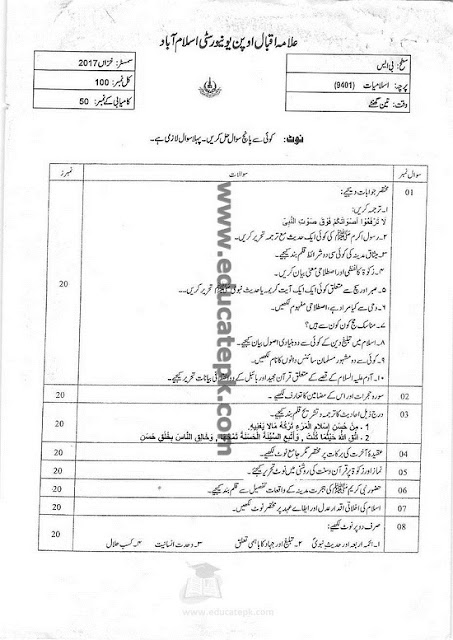 علامہ اقبال اوپن یونیورسٹی اسلام آباد
سطح: بی ایس
پرچہ: اسلامیات (9401)
وقت: تین گھنٹے
سمسٹر: خزاں 2017
کل نمبر: 100
کامیابی کے نمبر: 50
نوٹ: کوئی سے پانچ سوال حل کریں۔ پہلا سوال لازمی ہے۔
سوال نمبر سوالات نمبرز
01 مختصر جوابات دیجیے: 20
۱۔ ترجمہ کریں:
لا تَرْفَعُوا أَصْوَاتَكُمْ فَوْقَ صَوْتِ النَّبِيِّ
۲۔ رسول اکرم ﷺ کی کوئی ایک حدیث مع ترجمہ تحریر کریں۔
۳۔ میثاق مدینہ کی کوئی سی دو شرائط قلم بند کیجیے۔
۴۔ زکوٰۃ کا لفظی اور اصطلاحی معنی بیان کریں۔
۵۔ صبر اور سچ سے متعلق کوئی ایک ایک آیت کریمہ یا حدیث نبوی ﷺ تحریر کریں۔۔
۶۔ وحی سے کیا مراد ہے، اصطلاحی مفہوم لکھیں۔
۷۔ مناسک حج کون کون سے ہیں؟
۸۔ اسلام میں تبلیغ دین کے کوئی سے دو بنیادی اصول بیان کیجیے۔
۹۔ کوئی سے دو مشہور مسلمان سائنس دانوں کا نام لکھیں۔
۱۰۔ آدم علیہ السلام کے قصے کے متعلق قرآن مجید اور بائبل کے دو بیانات تحریر کیجیے۔
02 سورہ حجرات اور اس کے مضامین کا تعارف لکھیے۔ 20
03 درج ذیل احادیث کا ترجمہ و تشریح قلم بند کیجیے۔ 20
1 ۔ مِنْ حُسْنِ إِسْلامِ الْمَرْءِ تَرْكُهُ مَالا يَعْنِيهِ.
2 ۔ اتَّقِ اللَّهَ حَيْثُمَا كُنْتَ ، وَأَتْبِعِ السَّيِّئَةَ الْحَسَنَةَ تَمْحُهَا، وَخَالِقِ النَّاسَ بِخُلُقٍ حَسَنٍ
04 عقیدۂ آخرت کی برکات پر مختصر مگر جامع نوٹ لکھیں۔ 20
05 نماز اور زکوٰۃ پر قرآن و سنت کی روشنی میں نوٹ تحریر کیجیے۔ 20
06 حضور نبی کریم ﷺ کی ہجرت مدینہ کے واقعات تفصیل سے قلم بند کیجیے۔ 20
07 اسلام کی اخلاقی اقدار عدل اور ایفائے عہد پر مختصر نوٹ لکھیں۔ 20
08 صرف دو پر نوٹ لکھیے: 20
۱۔ ائمہ اربعہ اور حدیث نبویؐ ۲۔ تبلیغ اور جہاد کا باہمی تعلق ۳۔ وحدت انسانیت ۴۔ کسب حلال
www.educatepk.com
www.educatepk.com